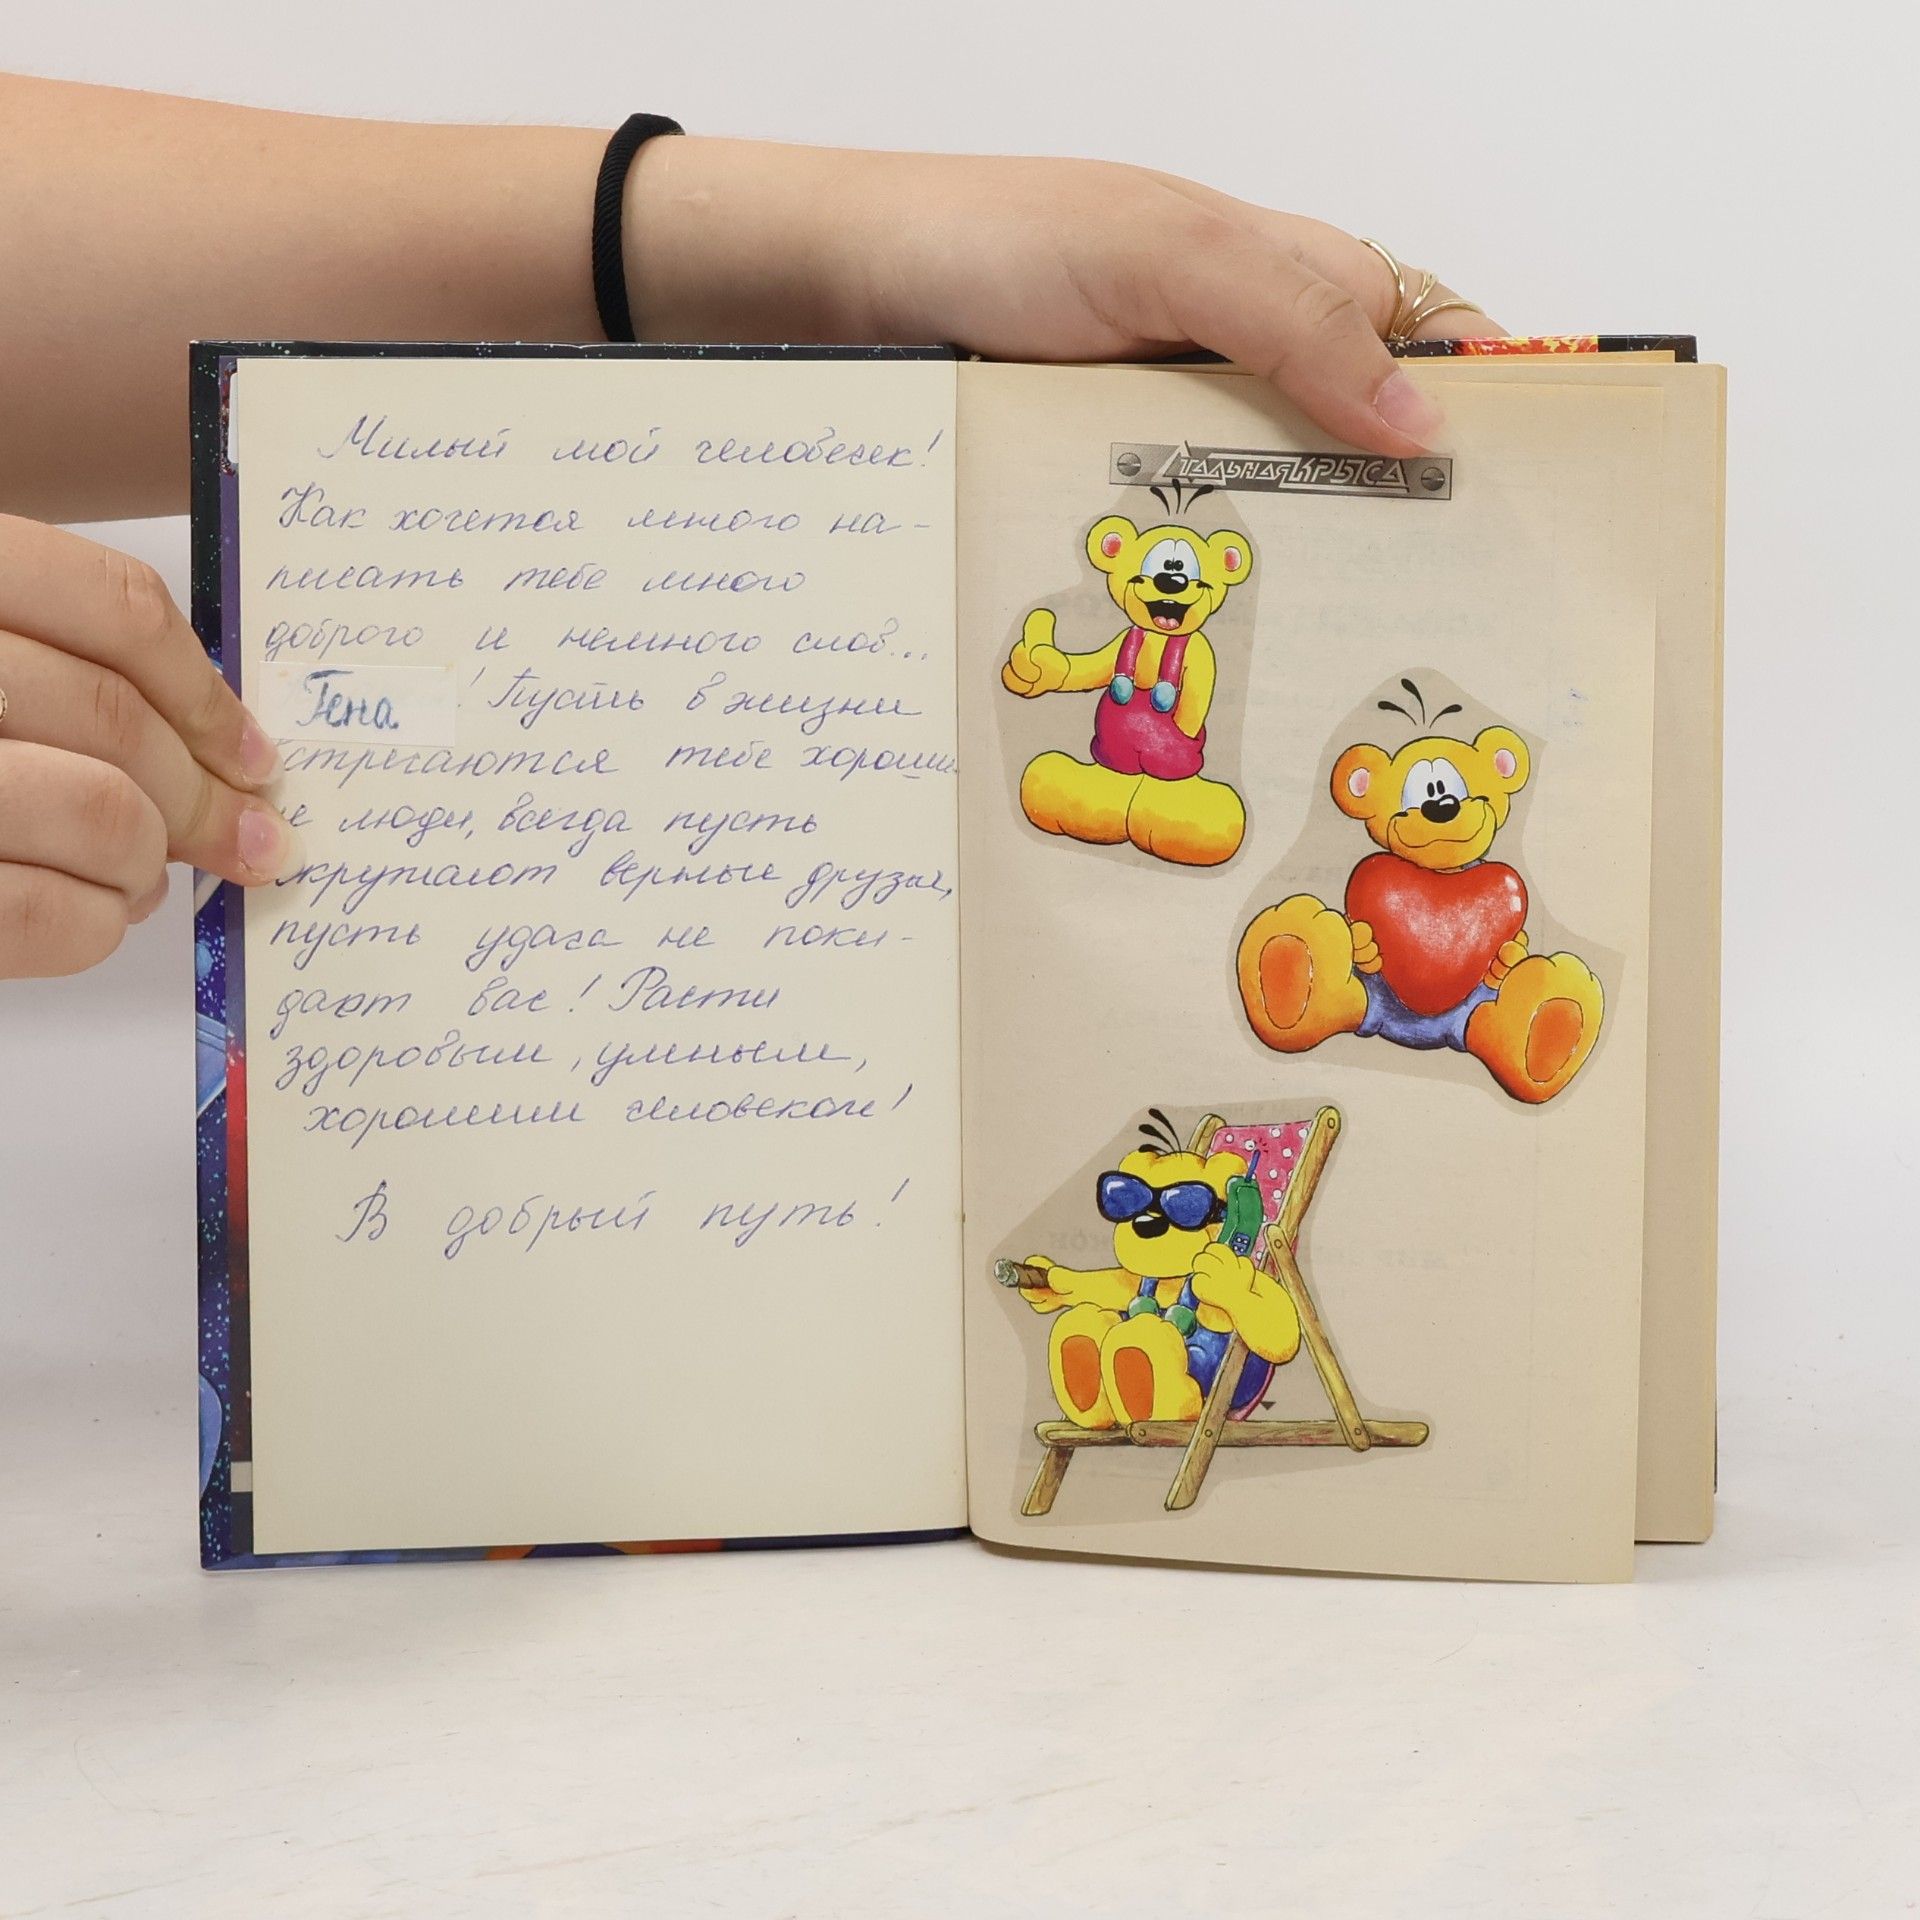 Милый мой человечек!
Как хочется много на-
писать тебе много
доброго и немного слов...
Гена! Пусть в жизни
встречаются тебе хороши-
е люди, всегда пусть
окружают верные друзья,
пусть удача не поки-
дает вас! Расти
здоровым, умным,
хорошим человеком!
В добрый путь!
Стальная Крыса